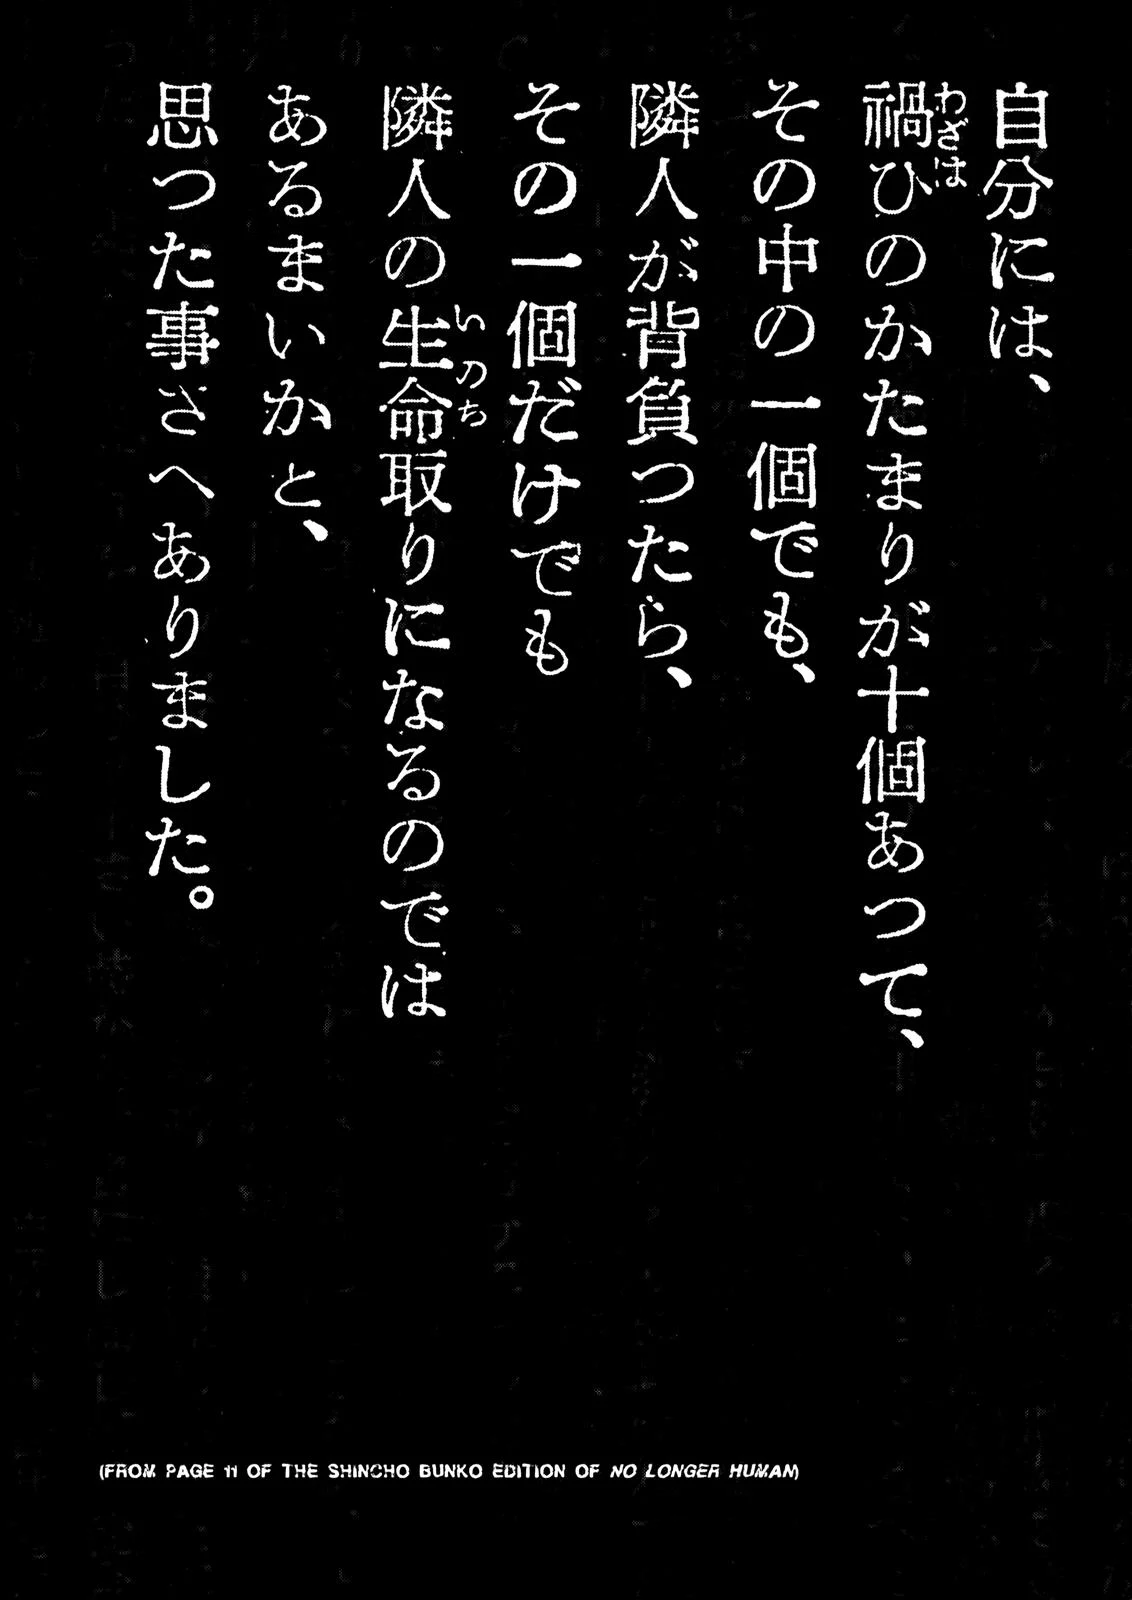 自分には、
禍ひのかたまりが十個あつて、
わざは
その中の一個でも、
隣人が背負つたら、
その一個だけでも
隣人の生命取りになるのでは
いのち
あるまいかと、
思つた事さへありました。
(FROM PAGE 11 OF THE SHINCHO BUNKO EDITION OF NO LONGER HUMAN)